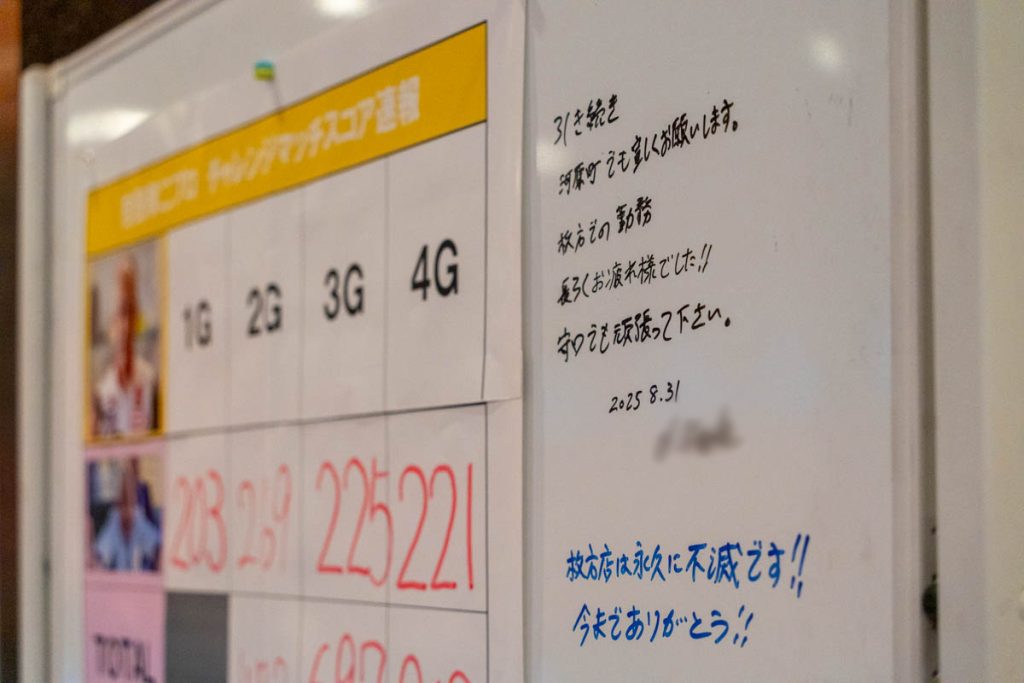 チャレンジマッチスコア速報
1G 2G 3G 4G
203 239 225 221
TOTAL
引き続き
河原町でも宜しくお願いします。
枚方での勤務
長らくお疲れ様でした!!
守口でも頑張って下さい。
2025 8.31
枚方店は永久に不滅です!!
今までありがとう!!